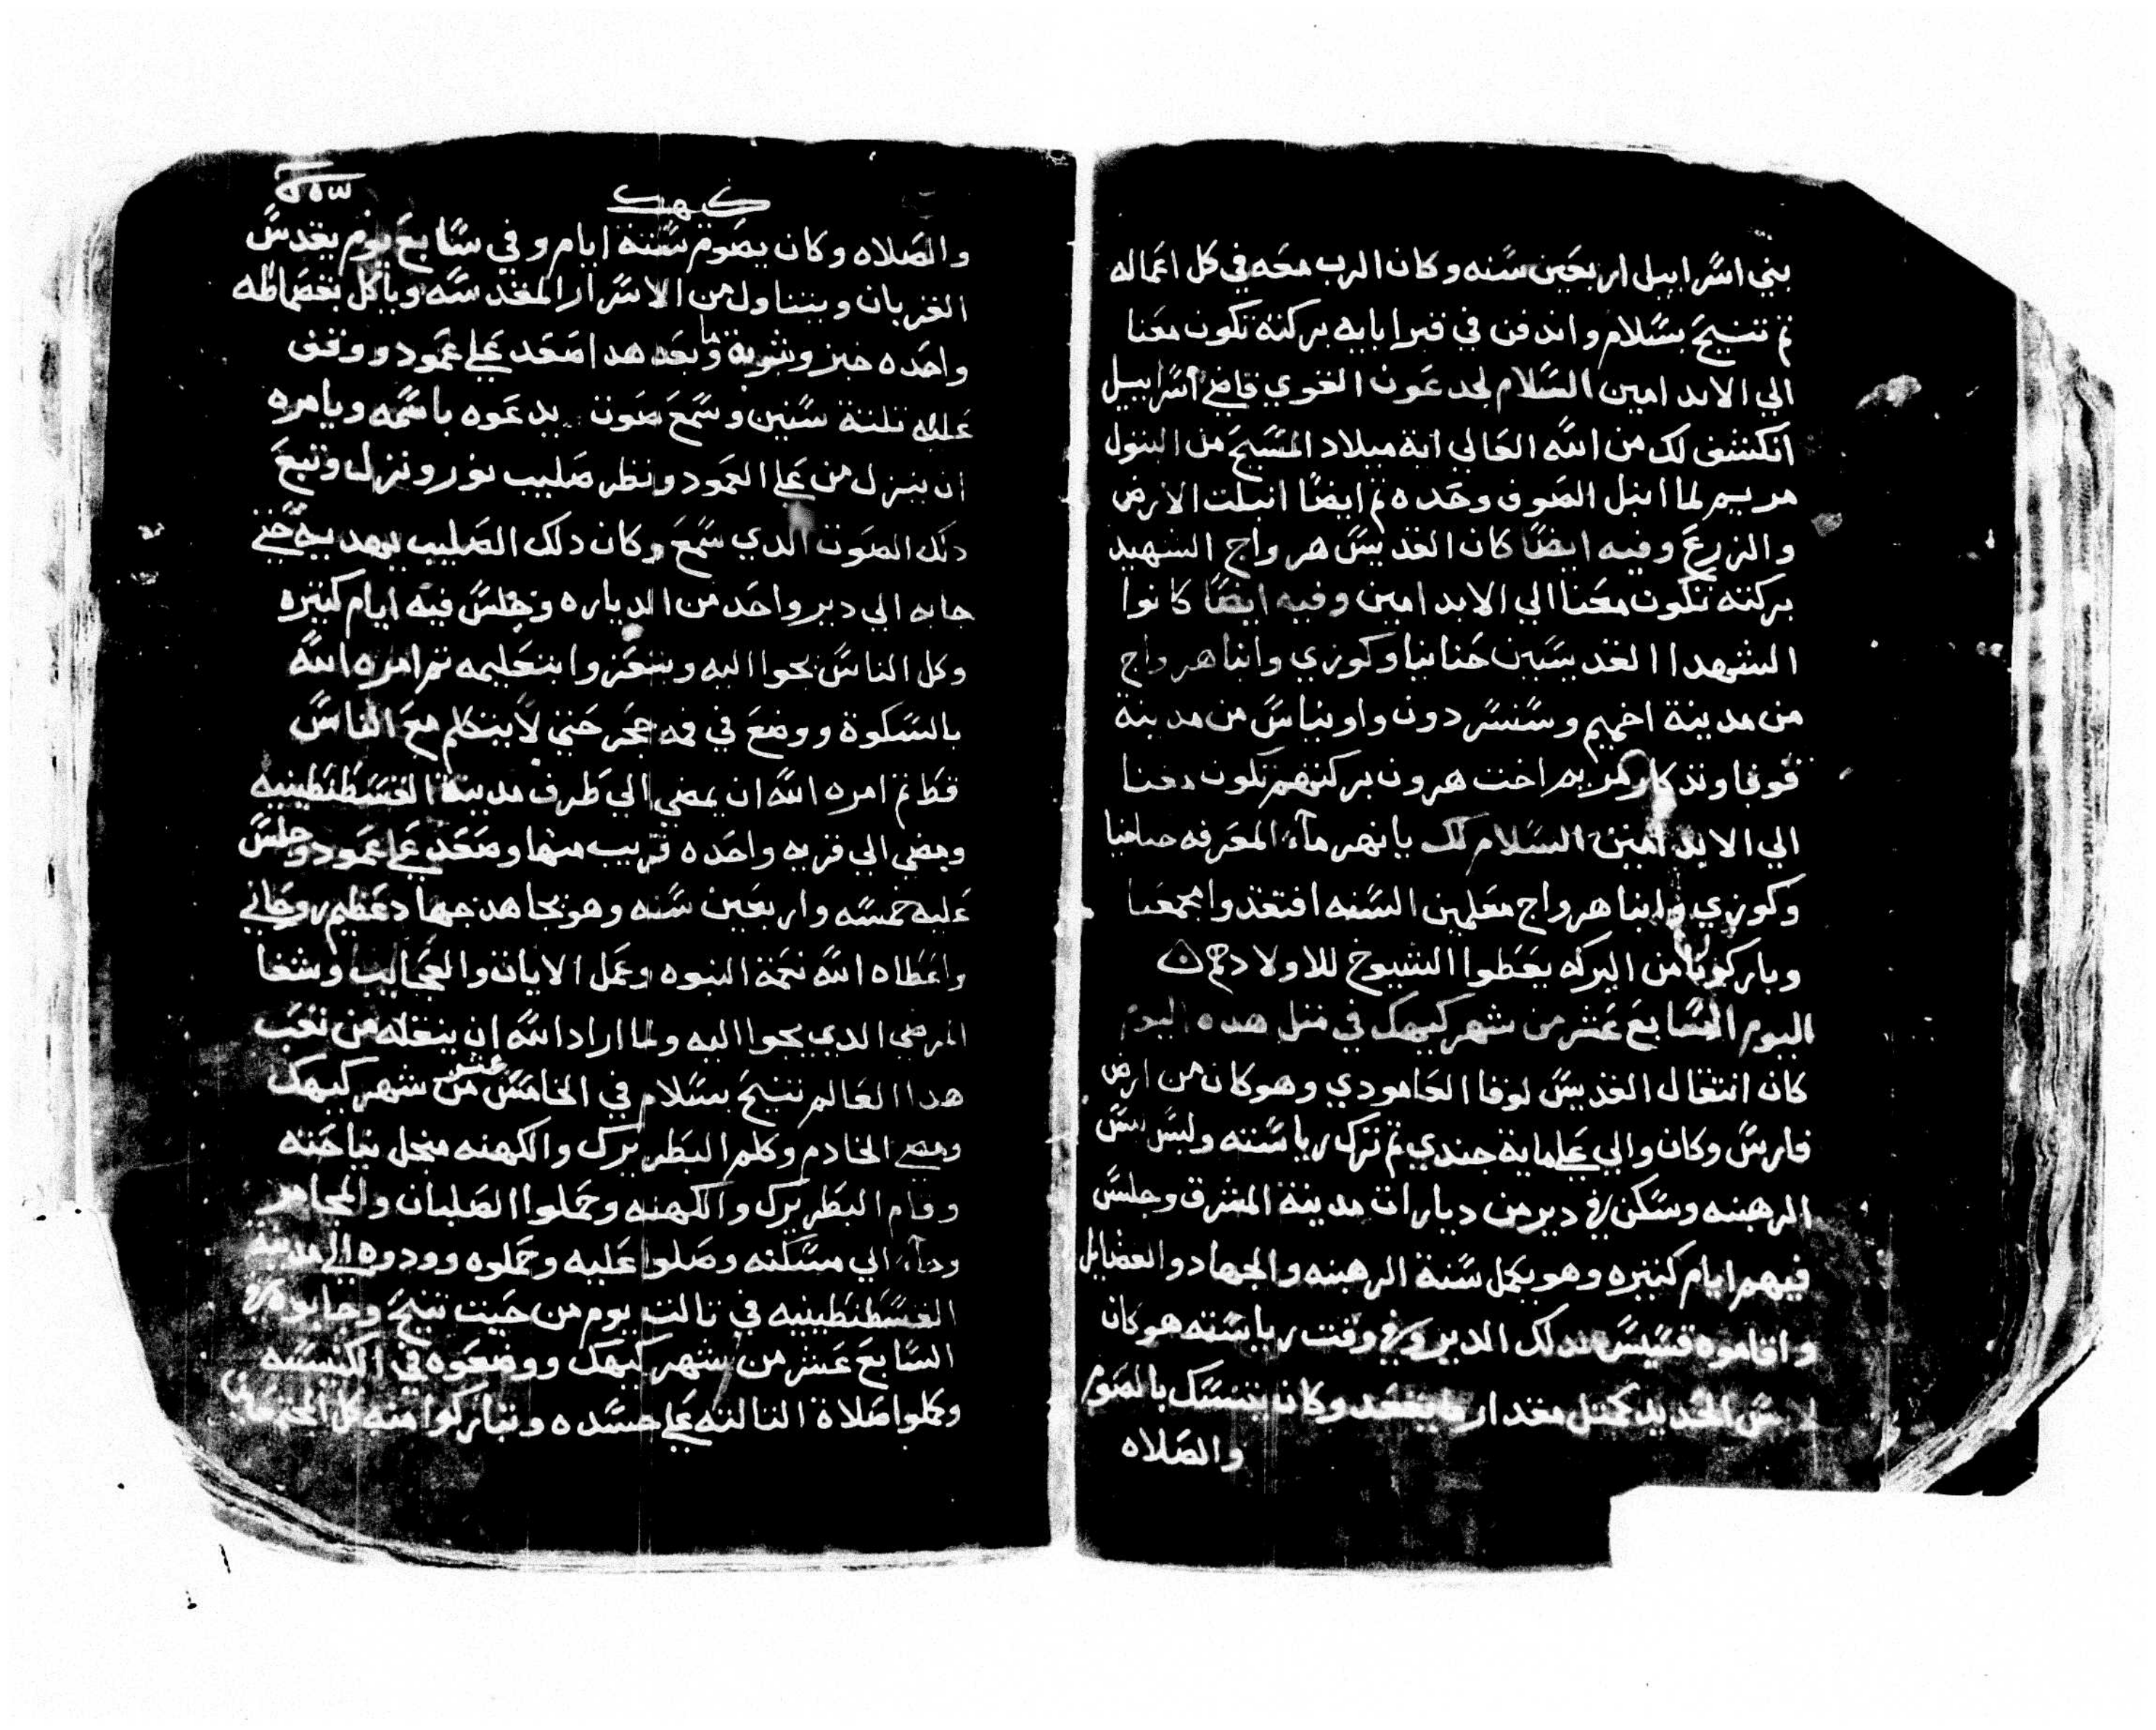 بني اسرابيل اربعين سنه وكان الرب معه في كل اعماله
تم تنيح بسلام واندفن في قبر ابايه بركته تكون معنا
الي الابد امين السلام لجدعون القوي قاضي اسرابيل
انكشف لك من الله العالي اية ميلاد المسيح من البتول
مريم لما ابتل الصوف وحده تم ايضا ابتلت الارض
والزرع وفيه ايضا كان القديس هرواج الشهيد
بركته تكون معنا الي الابد امين وفيه ايضا كانوا
الشهدا القديسين حنانيا وكوزي وابنا هرواج
من مدينة اخميم وسنسردون واونياس من مدينة
قوفا وتذكار مريم اخت هرون بركتهم تكون معنا
الي الابد امين السلام لك يا نهر ماء المعرفه حنانيا
وكوزي وابنا هرواج معلمين السنه افتقدوا مجمعنا
وباركونا من البركه يعطوا الشيوخ للاولادهم
اليوم السابع عشر من شهر كيهك في متل هده اليوم
كان انتقال القديس لوقا العامودي وهو كان من ارض
فارس وكان والي علي ماية جندي تم ترك رياسته ولبس لبس
الرهبنه وسكن في دير من ديارات مدينة المشرق وجلس
فيهم ايام كتيره وهو يكمل سنة الرهبنه والجهاد والفضايل
واقاموه قسيس لدلك الدير وفي وقت رياسته هو كان
لابس الحديد كمتل مقدار ما يقعد وكان يتنسك بالصوم
والصلاه
كيهك
والصلاه وكان يصوم ستة ايام وفي سابع يوم يقدس
القربان ويتناول من الاسرار المقدسه وياكل بقصماطه
واحده خبز وشوية ما وبعد هدا صعد علي عمود ووقف
عليه تلتة سنين وسمع صوت يدعوه باسمه ويامره
ان ينزل من علي العمود ونظر صليب نور ونزل وتبع
دلك الصوت الدي سمع وكان دلك الصليب يهديه حتي
جابه الي دير واحد من الدياره وجلس فيه ايام كتيره
وكل الناس يجوا اليه ويتعزوا بتعليمه تم امره الله
بالسكوة ووضع في فمه حجر حتي لا يتكلم مع الناس
قط تم امره الله ان يمضي الي طرف مدينة القسطنطينيه
ومضي الي قريه واحده قريب منها وصعد علي عمود وجلس
عليه خمسه واربعين سنه وهو يجاهد جهاد عظيم روحاني
واعطاه الله نعمة النبوه وعمل الايات والعجايب وشفا
المرضي الدي يجوا اليه ولما اراد الله ان ينقله من تعب
هدا العالم تنيح بسلام في الخامس عشر من شهر كيهك
ومضي الخادم وكلم البطريرك والكهنه منجل نياحته
وقام البطريرك والكهنه وحملوا الصلبان والمجامر
وجاء الي مسكنه وصلوا عليه وحملوه وودوه الي مدينة
القسطنطينيه في تالت يوم من حيت تنيح وجابوه في
السابع عشر من شهر كيهك ووضعوه في الكنيسه
وكملوا صلاة التالته علي جسده وتباركوا منه كل المجتمعين